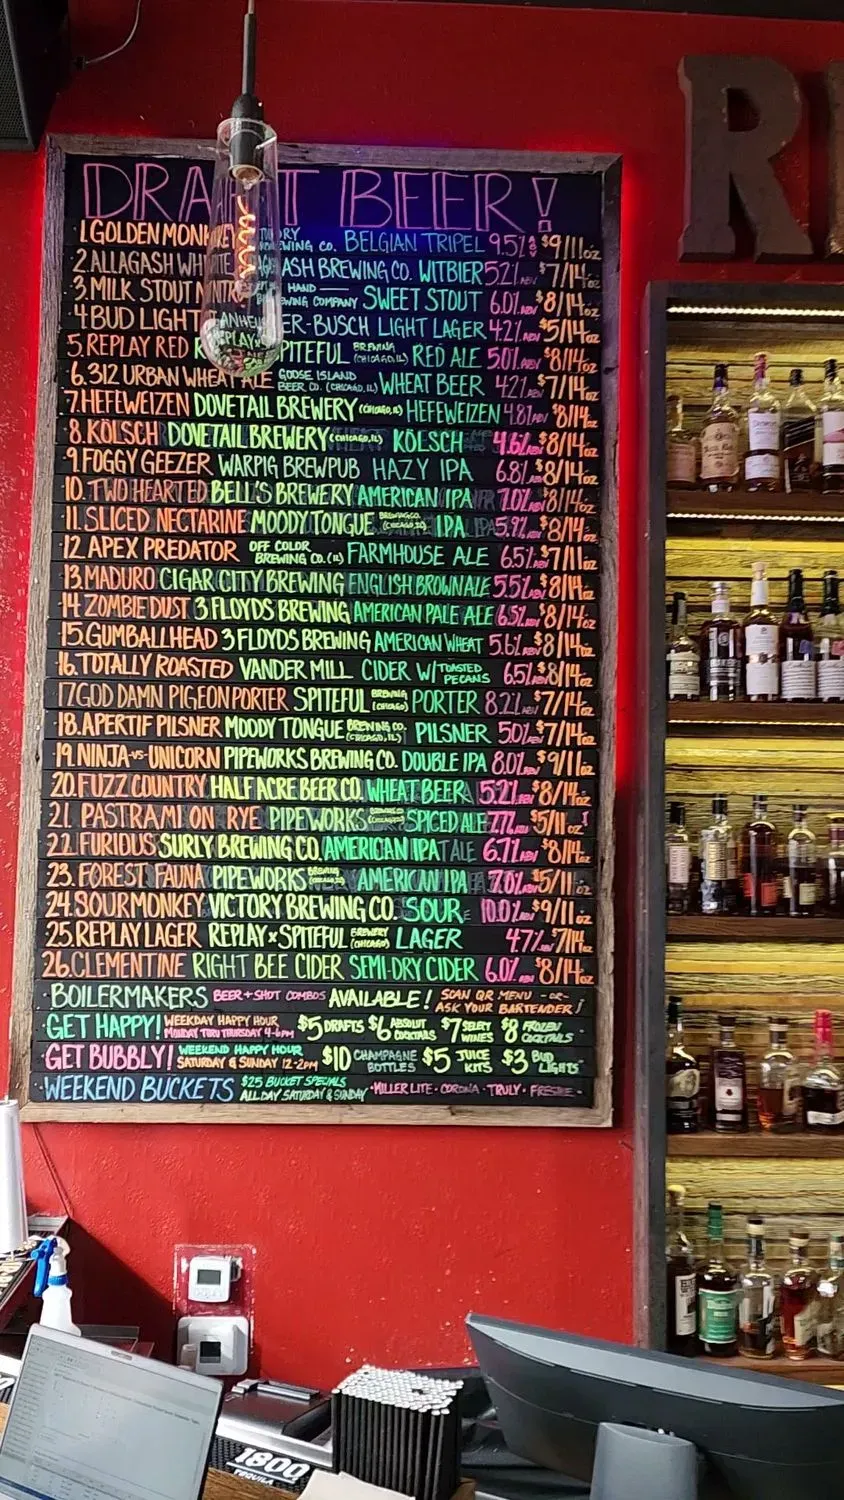 DRAFT BEER!
1. GOLDEN MONKEY BREWING CO. BELGIAN TRIPEL 9.5% ABV $9/11oz
2. ALLAGASH WHITE ASH BREWING CO. WITBIER 5.2% ABV $7/14oz
3. MILK STOUT NITRO HAND BREWING COMPANY SWEET STOUT 6.0% ABV $8/14oz
4 BUD LIGHT ANHEUSER-BUSCH LIGHT LAGER 4.2% ABV $5/14oz
5. REPLAY RED REPLAY x SPITEFUL BREWING (CHICAGO, IL) RED ALE 5.0% ABV $8/14oz
6. 312 URBAN WHEAT ALE GOOSE ISLAND BEER CO. (CHICAGO, IL) WHEAT BEER 4.2% ABV $7/14oz
7. HEFEWEIZEN DOVETAIL BREWERY (CHICAGO, IL) HEFEWEIZEN 4.8% ABV $8/14oz
8. KÖLSCH DOVETAIL BREWERY (CHICAGO, IL) KÖLSCH 4.6% ABV $8/14oz
9. FOGGY GEEZER WARPIG BREWPUB HAZY IPA 6.8% ABV $8/14oz
10. TWO HEARTED BELL'S BREWERY AMERICAN IPA 7.0% ABV $8/14oz
11. SLICED NECTARINE MOODY TONGUE BREWING CO. (CHICAGO, IL) IPA 5.9% ABV $8/14oz
12. APEX PREDATOR OFF COLOR BREWING CO. (IL) FARMHOUSE ALE 6.5% ABV $7/11oz
13. MADURO CIGAR CITY BREWING ENGLISH BROWN ALE 5.5% ABV $8/14oz
14 ZOMBIE DUST 3 FLOYDS BREWING AMERICAN PALE ALE 6.5% ABV $8/14oz
15. GUMBALLHEAD 3 FLOYDS BREWING AMERICAN WHEAT 5.6% ABV $8/14oz
16. TOTALLY ROASTED VANDER MILL CIDER W/ TOASTED PECANS 6.5% ABV $8/14oz
17. GOD DAMN PIGEON PORTER SPITEFUL BREWING (CHICAGO) PORTER 8.2% ABV $7/14oz
18. APERTIF PILSNER MOODY TONGUE BREWING CO. (CHICAGO, IL) PILSNER 5.0% ABV $7/14oz
19. NINJA-vs-UNICORN PIPEWORKS BREWING CO. DOUBLE IPA 8.0% ABV $9/11oz
20. FUZZ COUNTRY HALF ACRE BEER CO. WHEAT BEER 5.2% ABV $8/14oz
21. PASTRAMI ON RYE PIPEWORKS BREWING CO (CHICAGO) SPICED ALE 7.7% ABV $5/11oz
22. FURIOUS SURLY BREWING CO. AMERICAN IPA 6.7% ABV $8/14oz
23. FOREST FAUNA PIPEWORKS BREWING (CHICAGO) AMERICAN IPA 7.0% ABV $5/11oz
24. SOUR MONKEY VICTORY BREWING CO. SOUR 10.0% ABV $9/11oz
25. REPLAY LAGER REPLAY x SPITEFUL BREWERY (CHICAGO) LAGER 4.7% ABV $7/14oz
26. CLEMENTINE RIGHT BEE CIDER SEMI-DRY CIDER 6.0% ABV $8/14oz
·BOILERMAKERS BEER+SHOT COMBOS AVAILABLE! SCAN QR MENU -OR- ASK YOUR BARTENDER!
GET HAPPY! WEEKDAY HAPPY HOUR MONDAY THRU THURSDAY 4-6PM $5 DRAFTS $6 ABSOLUT COCKTAILS $7 SELECT WINES $8 FROZEN COCKTAILS
GET BUBBLY! WEEKEND HAPPY HOUR SATURDAY & SUNDAY 12-2PM $10 CHAMPAGNE BOTTLES $5 JUICE KITS $3 BUD LIGHTS
·WEEKEND BUCKETS $25 BUCKET SPECIALS ALL DAY SATURDAY & SUNDAY ·MILLER LITE · CORONA · TRULY ·
R
1800
TEQUILA